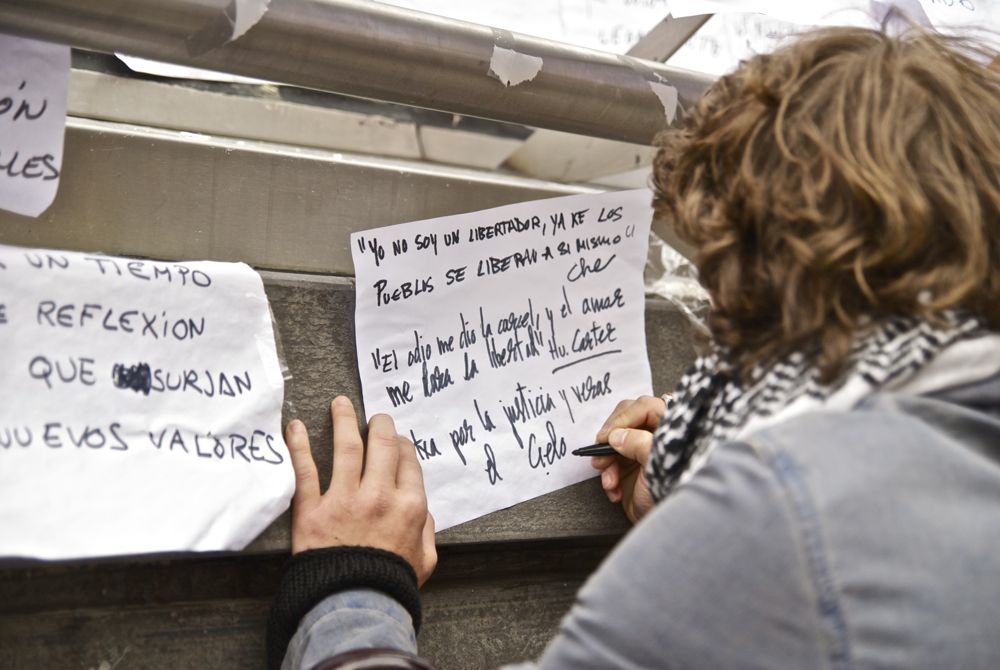 ÓN
LLES
UN TIEMPO
REFLEXION
QUE SURJAN
NUEVOS VALORES
"YO NO SOY UN LIBERTADOR, YA KE LOS
PUEBLOS SE LIBERAN A SI MISMO"
Che
"El odio me dio la carcel, y el amar
me dara la libertad" Hu. Carter
por la justicia y veras
el Cielo